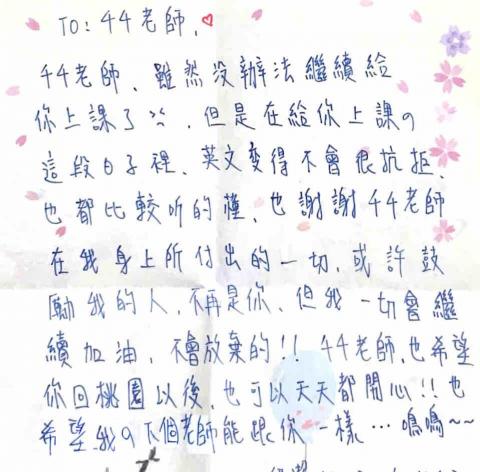 TO: 44老師,
44老師、雖然沒辦法繼續給
你上課了、但是在給你上課の
這段日子裡、英文變得不會很抗拒、
也都比較听的懂、也謝謝44老師
在我身上所付出的一切、或許鼓
勵我的人、不再是你、但我一切會繼
續加油、不會放棄的!! 44老師、也希望
你回桃園以後、也可以天天都開心!! 也
希望我の下個老師能跟你一樣…嗚嗚~~